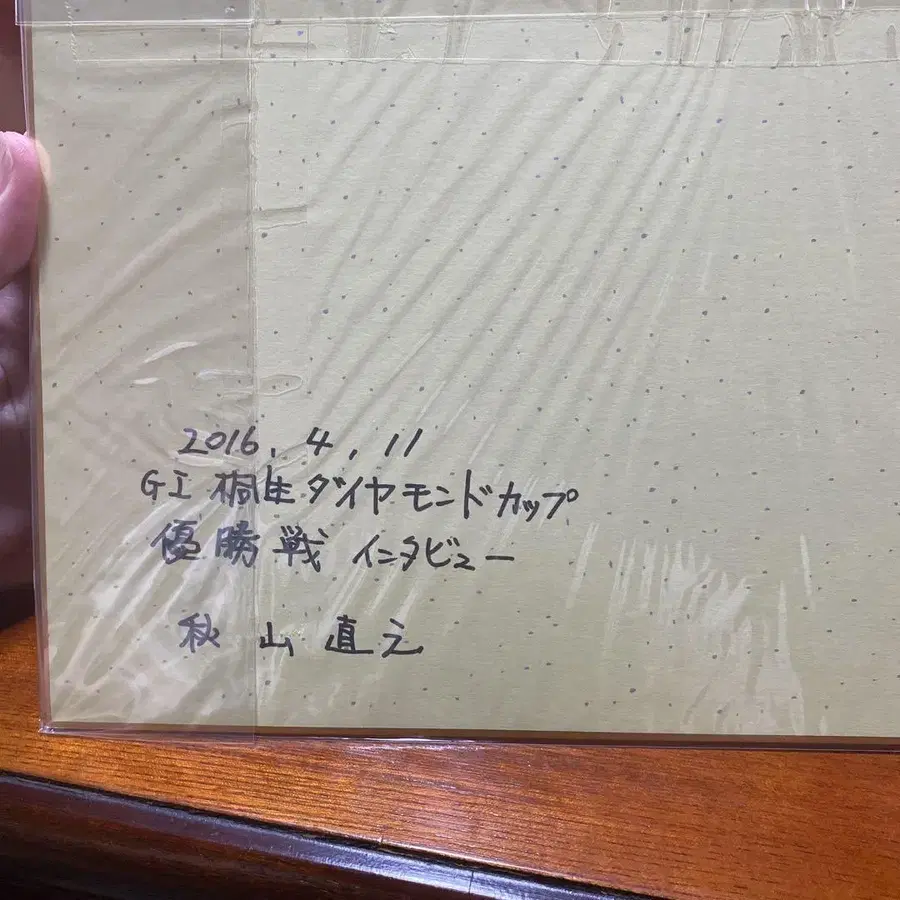 2016.4.11
GI 桐生ダイヤモンドカップ
優勝戦 インタビュー
秋山直之